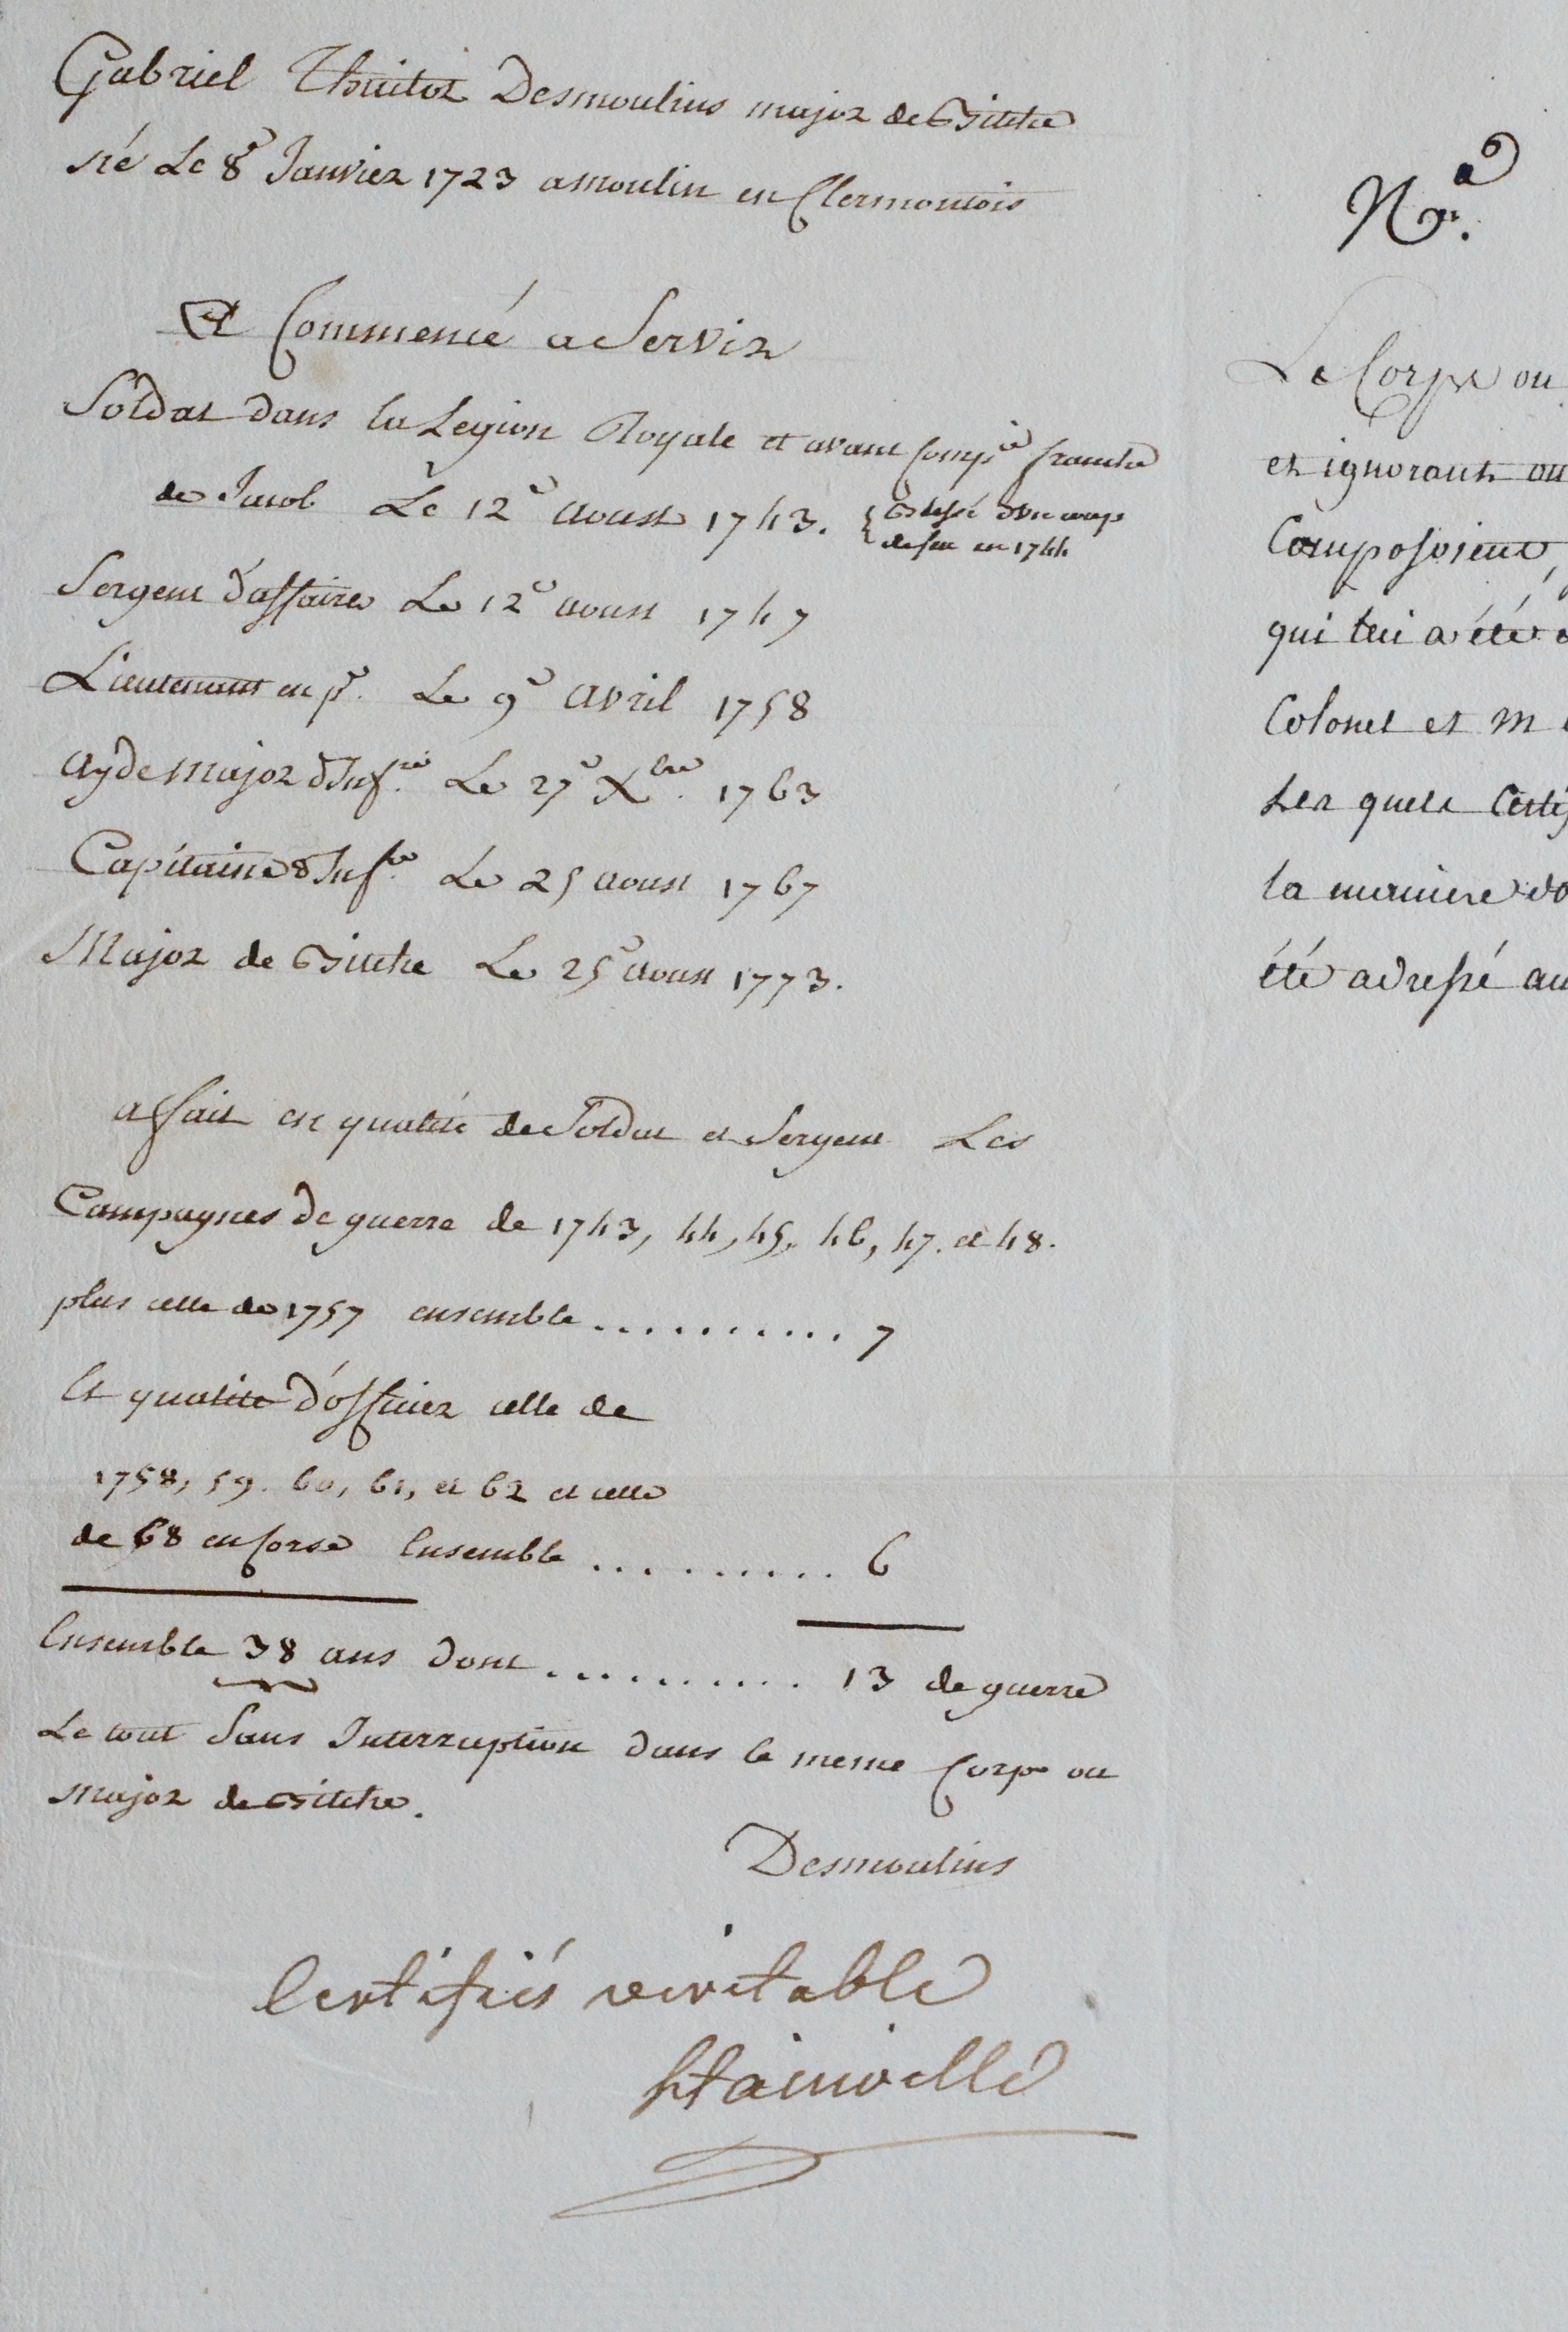 Gabriel Thuitot Desmoulins major de Bitche
né Le 8e Janvier 1723 a moulin en Clermontois
A Commencé a Servir
Soldat dans la Legion Royale et avant Compie franche
de Jacob Le 12e aoust 1743. { Blessé d'un coup
de feu en 1744
Sergent d'affaire Le 12e aoust 1747
Lieutenant en pr. Le 9e avril 1758
ayde Major d'Infrie Le 27e Xbre. 1763
Capitaine d'Infrie Le 25 aoust 1767
Major de Bitche Le 25e aoust 1773.
a fait en qualité de Soldat et Sergent Les
Campagnes de guerre de 1743, 44, 45, 46, 47. et 48.
plus celle de 1757 ensemble........... 7
Et qualite d'officier celle de
1758, 59. 60, 61, et 62 et celle
de 68 en Corse Ensemble .......... 6
Ensemble 38 ans dont ........... 13 de guerre
Le tout Sans Interruption dans le meme Corps ou
Major de Bitche.
Desmoulins
Certifiés veritable
Stainville
Le Corps ou
et ignorant ou
Composoient,
qui lui a été
Colonel et M
Les quels Certif
la maniere do
été adressé au